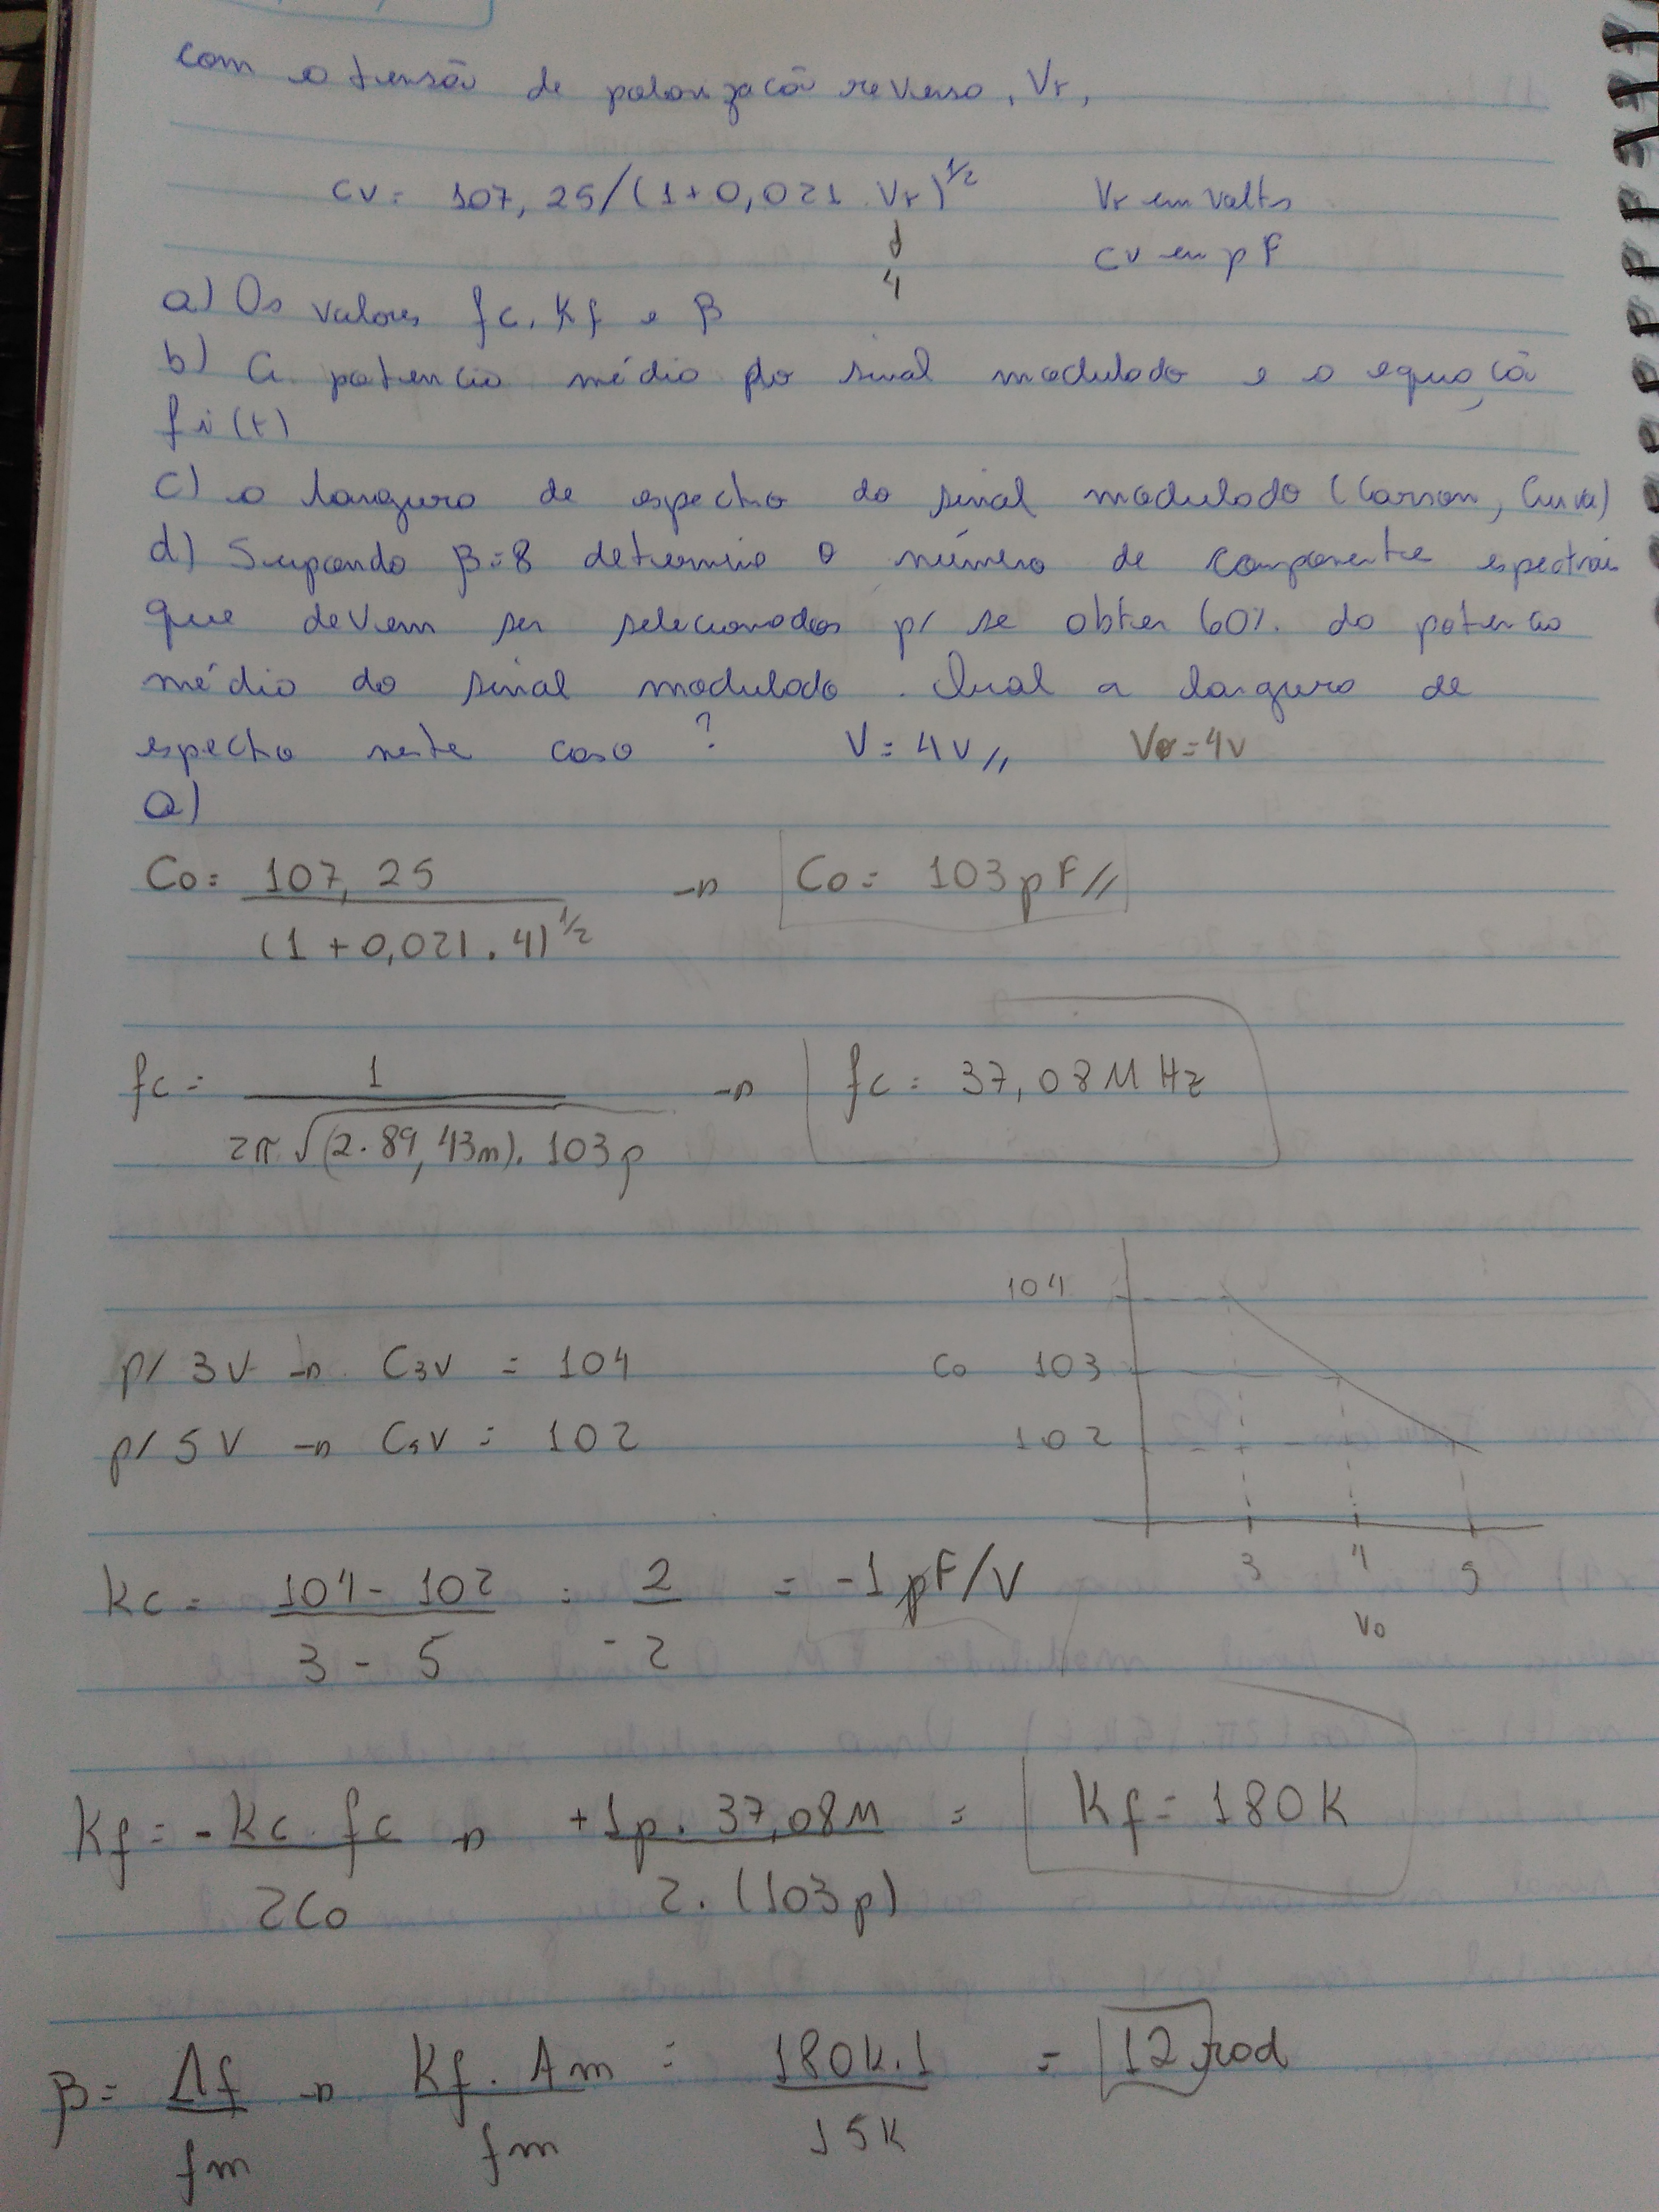 com a tensão de polarização reversa, Vr,
CV = 107,25/(1+0,021 Vr)^1/2 Vr em volts
↓ CV em pF
4
a) Os valores fc, Kf e β
b) A potencia média do sinal modulado e a equação
fi(t)
c) a largura de espectro do sinal modulado (Carson, Curva)
d) Supondo β=8 determine o número de componente espectrais
que devem ser selecionados p/ se obter 60% da potencia
média do sinal modulado. Qual a largura de
espectro neste caso? V = 4V// Vo = 4V
a)
Co = 107,25 / (1 + 0,021 . 4)^1/2 → Co = 103pF//
fc = 1 / 2π√(2.89,43n).103p → fc = 37,08M Hz
104
p/ 3V → C3V = 104 Co 103
p/ 5V → C5V = 102 102
3 4 5
Vo
Kc = 104 - 102 / 3 - 5 = 2 / -2 = -1 pF/V
Kf = - Kc . fc / 2Co → +1p . 37,08M / 2.(103p) = Kf = 180K
β = Δf / fm → Kf . Am / fm = 180K.1 / 15K = 12 rad